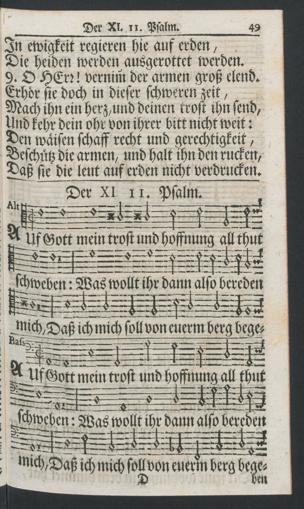 Der XI. 11. Psalm. 49
In ewigkeit regieren hie auf erden,
Die heiden werden ausgerottet werden.
9. O HErr! vernim̄ der armen groß elend.
Erhör sie doch in dieser schweren zeit,
Mach ihn ein herz, und deinen trost ihn send,
Und kehr dein ohr von ihrer bitt nicht weit:
Den wäisen schaff recht und gerechtigkeit,
Beschütz die armen, und halt ihn den rucken,
Daß sie die leut auf erden nicht verdrucken.
Der XI 11. Psalm.
Alt
AUf Gott mein trost und hoffnung all thut
schweben: Was wollt ihr dann also bereden
mich, Daß ich mich soll von euerm berg bege-
Bass
AUf Gott mein trost und hoffnung all thut
schweben: Was wollt ihr dann also bereden
mich, Daß ich mich soll von euerm berg bege-
D ben